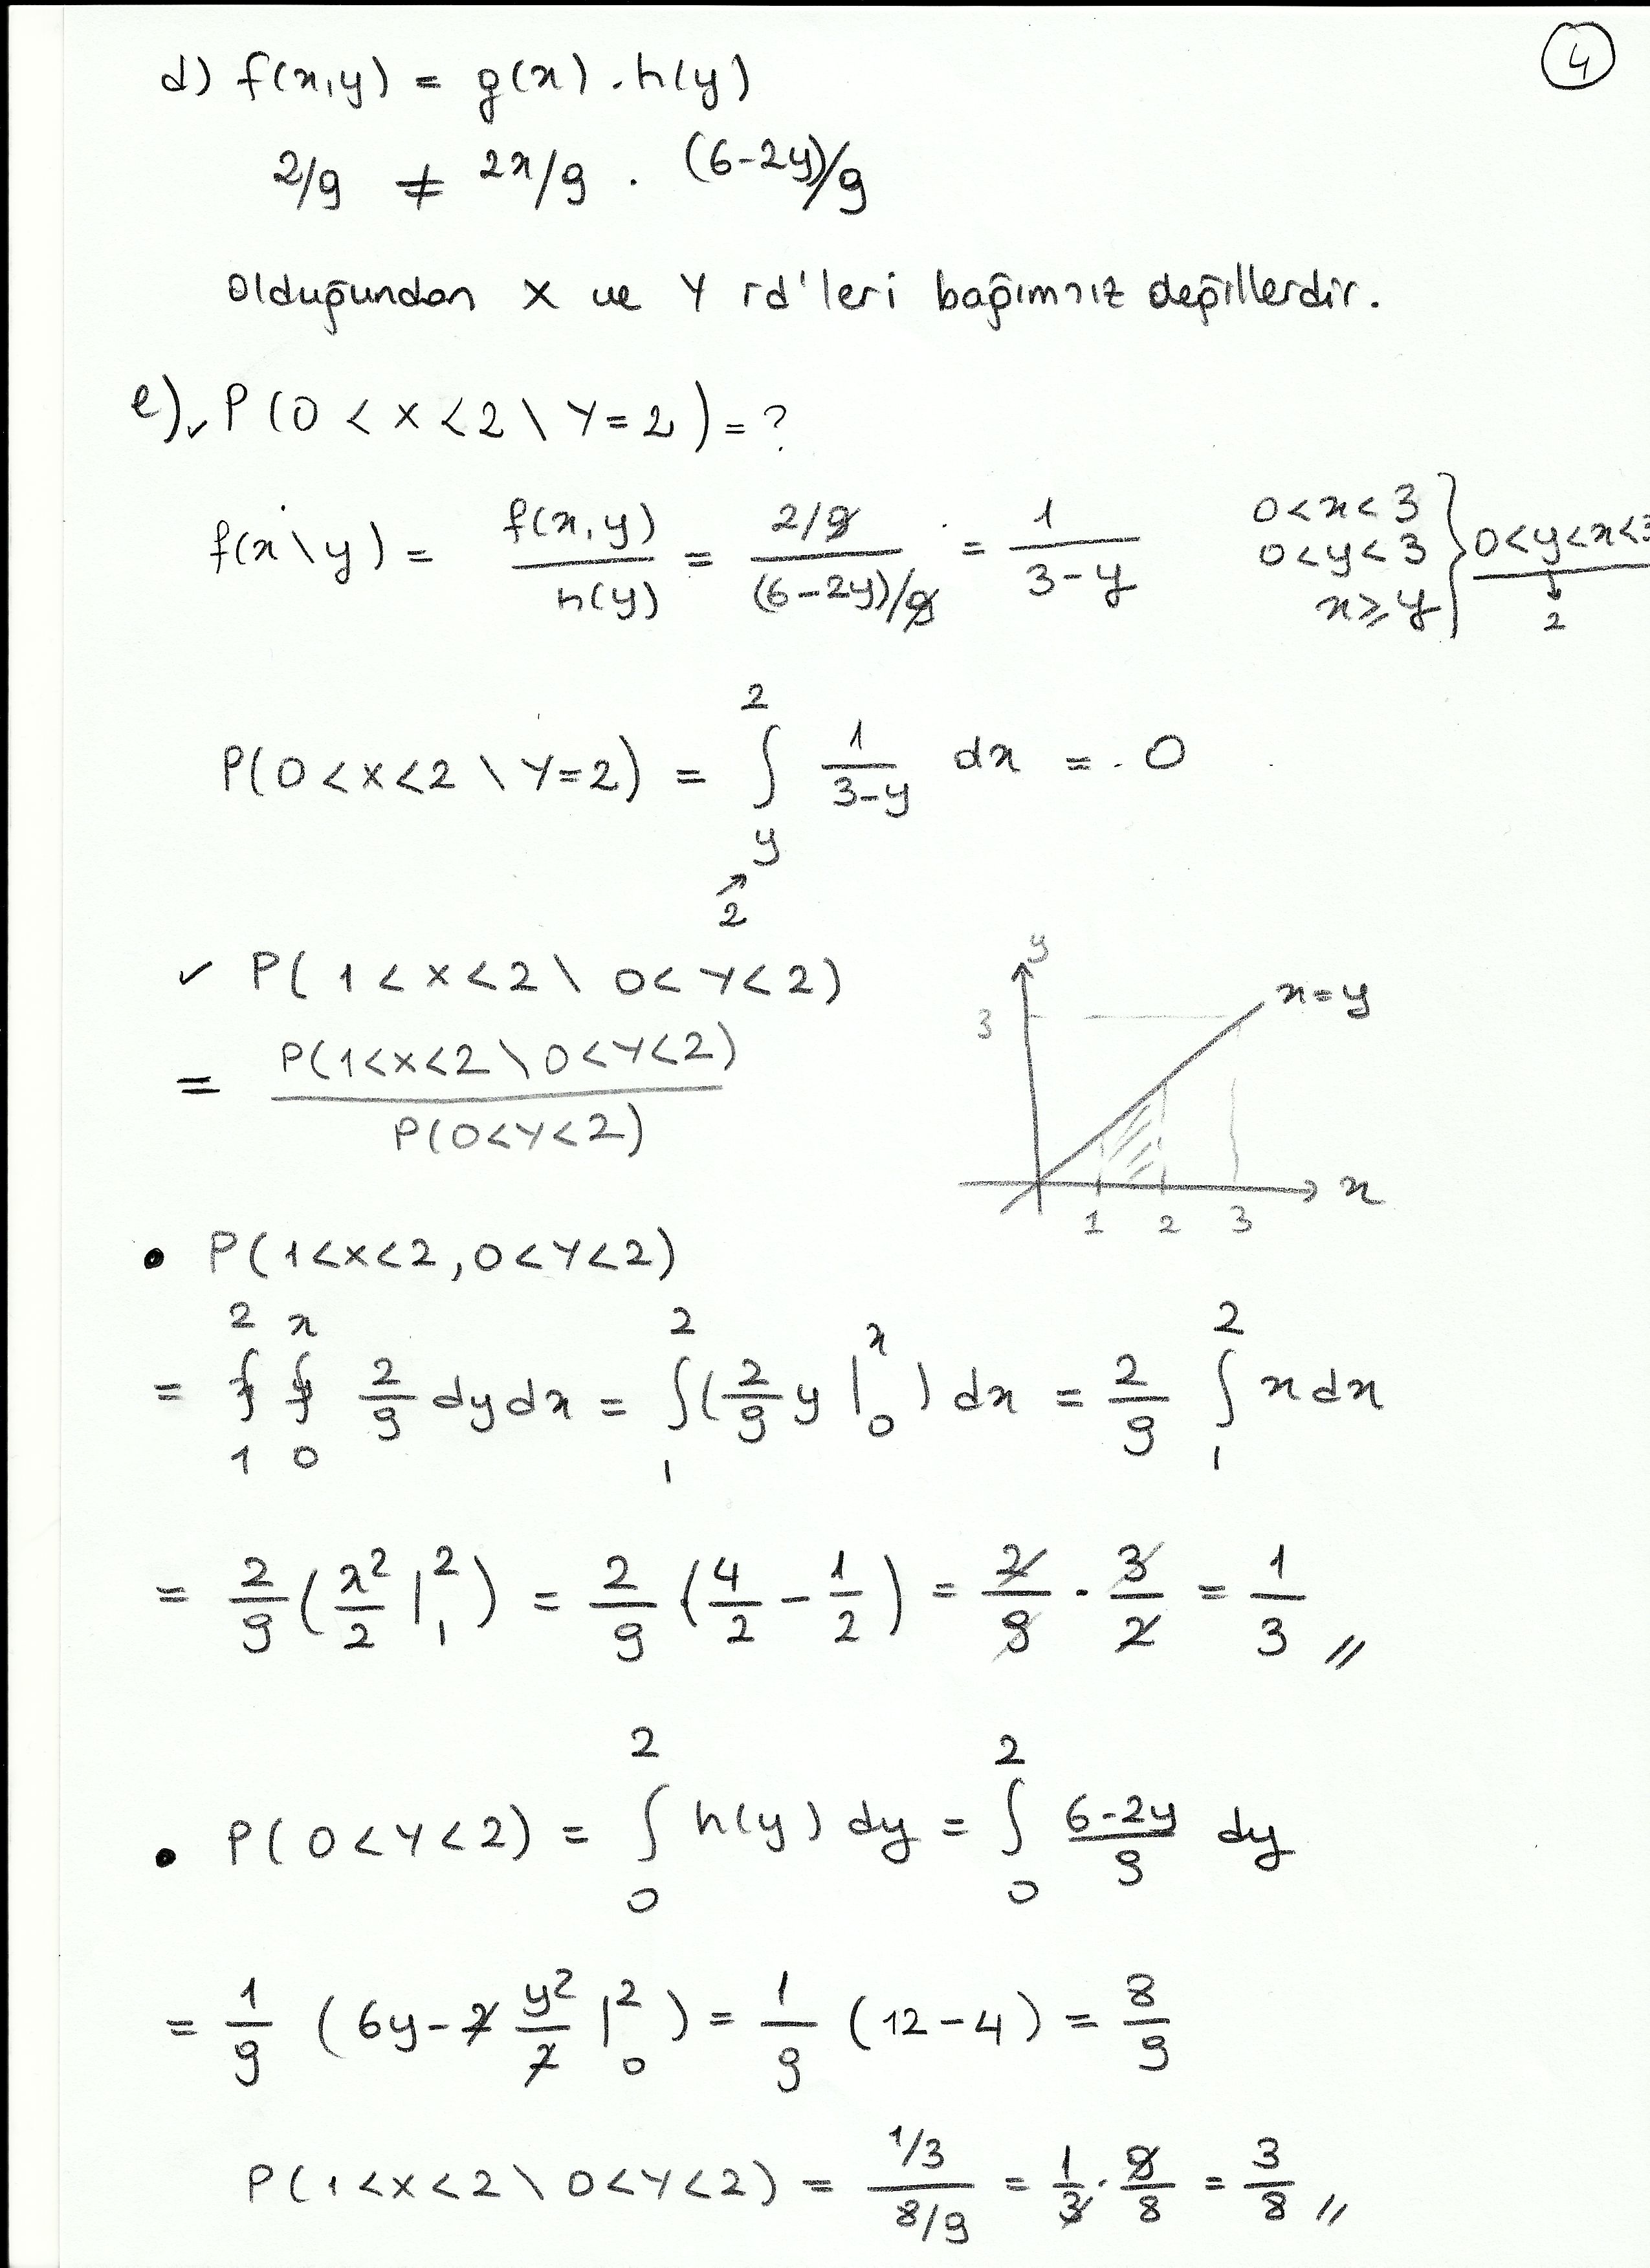 4
d) f(x,y) = g(x) . h(y)
2/9 ≠ 2x/9 . (6-2y)/9
olduğundan X ve Y rd'leri bağımsız değillerdir.
e) ✓ P(0 < X < 2 \ Y = 2) = ?
f(x\y) = f(x,y)/h(y) = (2/9)/((6-2y)/9) = 1/(3-y)
0<x<3
0<y<3
x≥y
} 0<y<x<3
↓
2
P(0<X<2 \ Y=2) = ∫_y^2 1/(3-y) dx = 0
↗
2
✓ P(1<X<2 \ 0<Y<2)
= P(1<X<2 \ 0<Y<2) / P(0<Y<2)
y
3
x=y
1 2 3 x
• P(1<X<2, 0<Y<2)
= ∫_1^2 ∫_0^x 2/9 dy dx = ∫_1^2 (2/9 y |_0^x) dx = 2/9 ∫_1^2 x dx
= 2/9 (x²/2 |_1^2) = 2/9 (4/2 - 1/2) = 2/9 . 3/2 = 1/3 //
• P(0<Y<2) = ∫_0^2 h(y) dy = ∫_0^2 (6-2y)/9 dy
= 1/9 (6y - 2 y²/2 |_0^2) = 1/9 (12-4) = 8/9
P(1<X<2 \ 0<Y<2) = (1/3)/(8/9) = 1/3 . 9/8 = 3/8 //